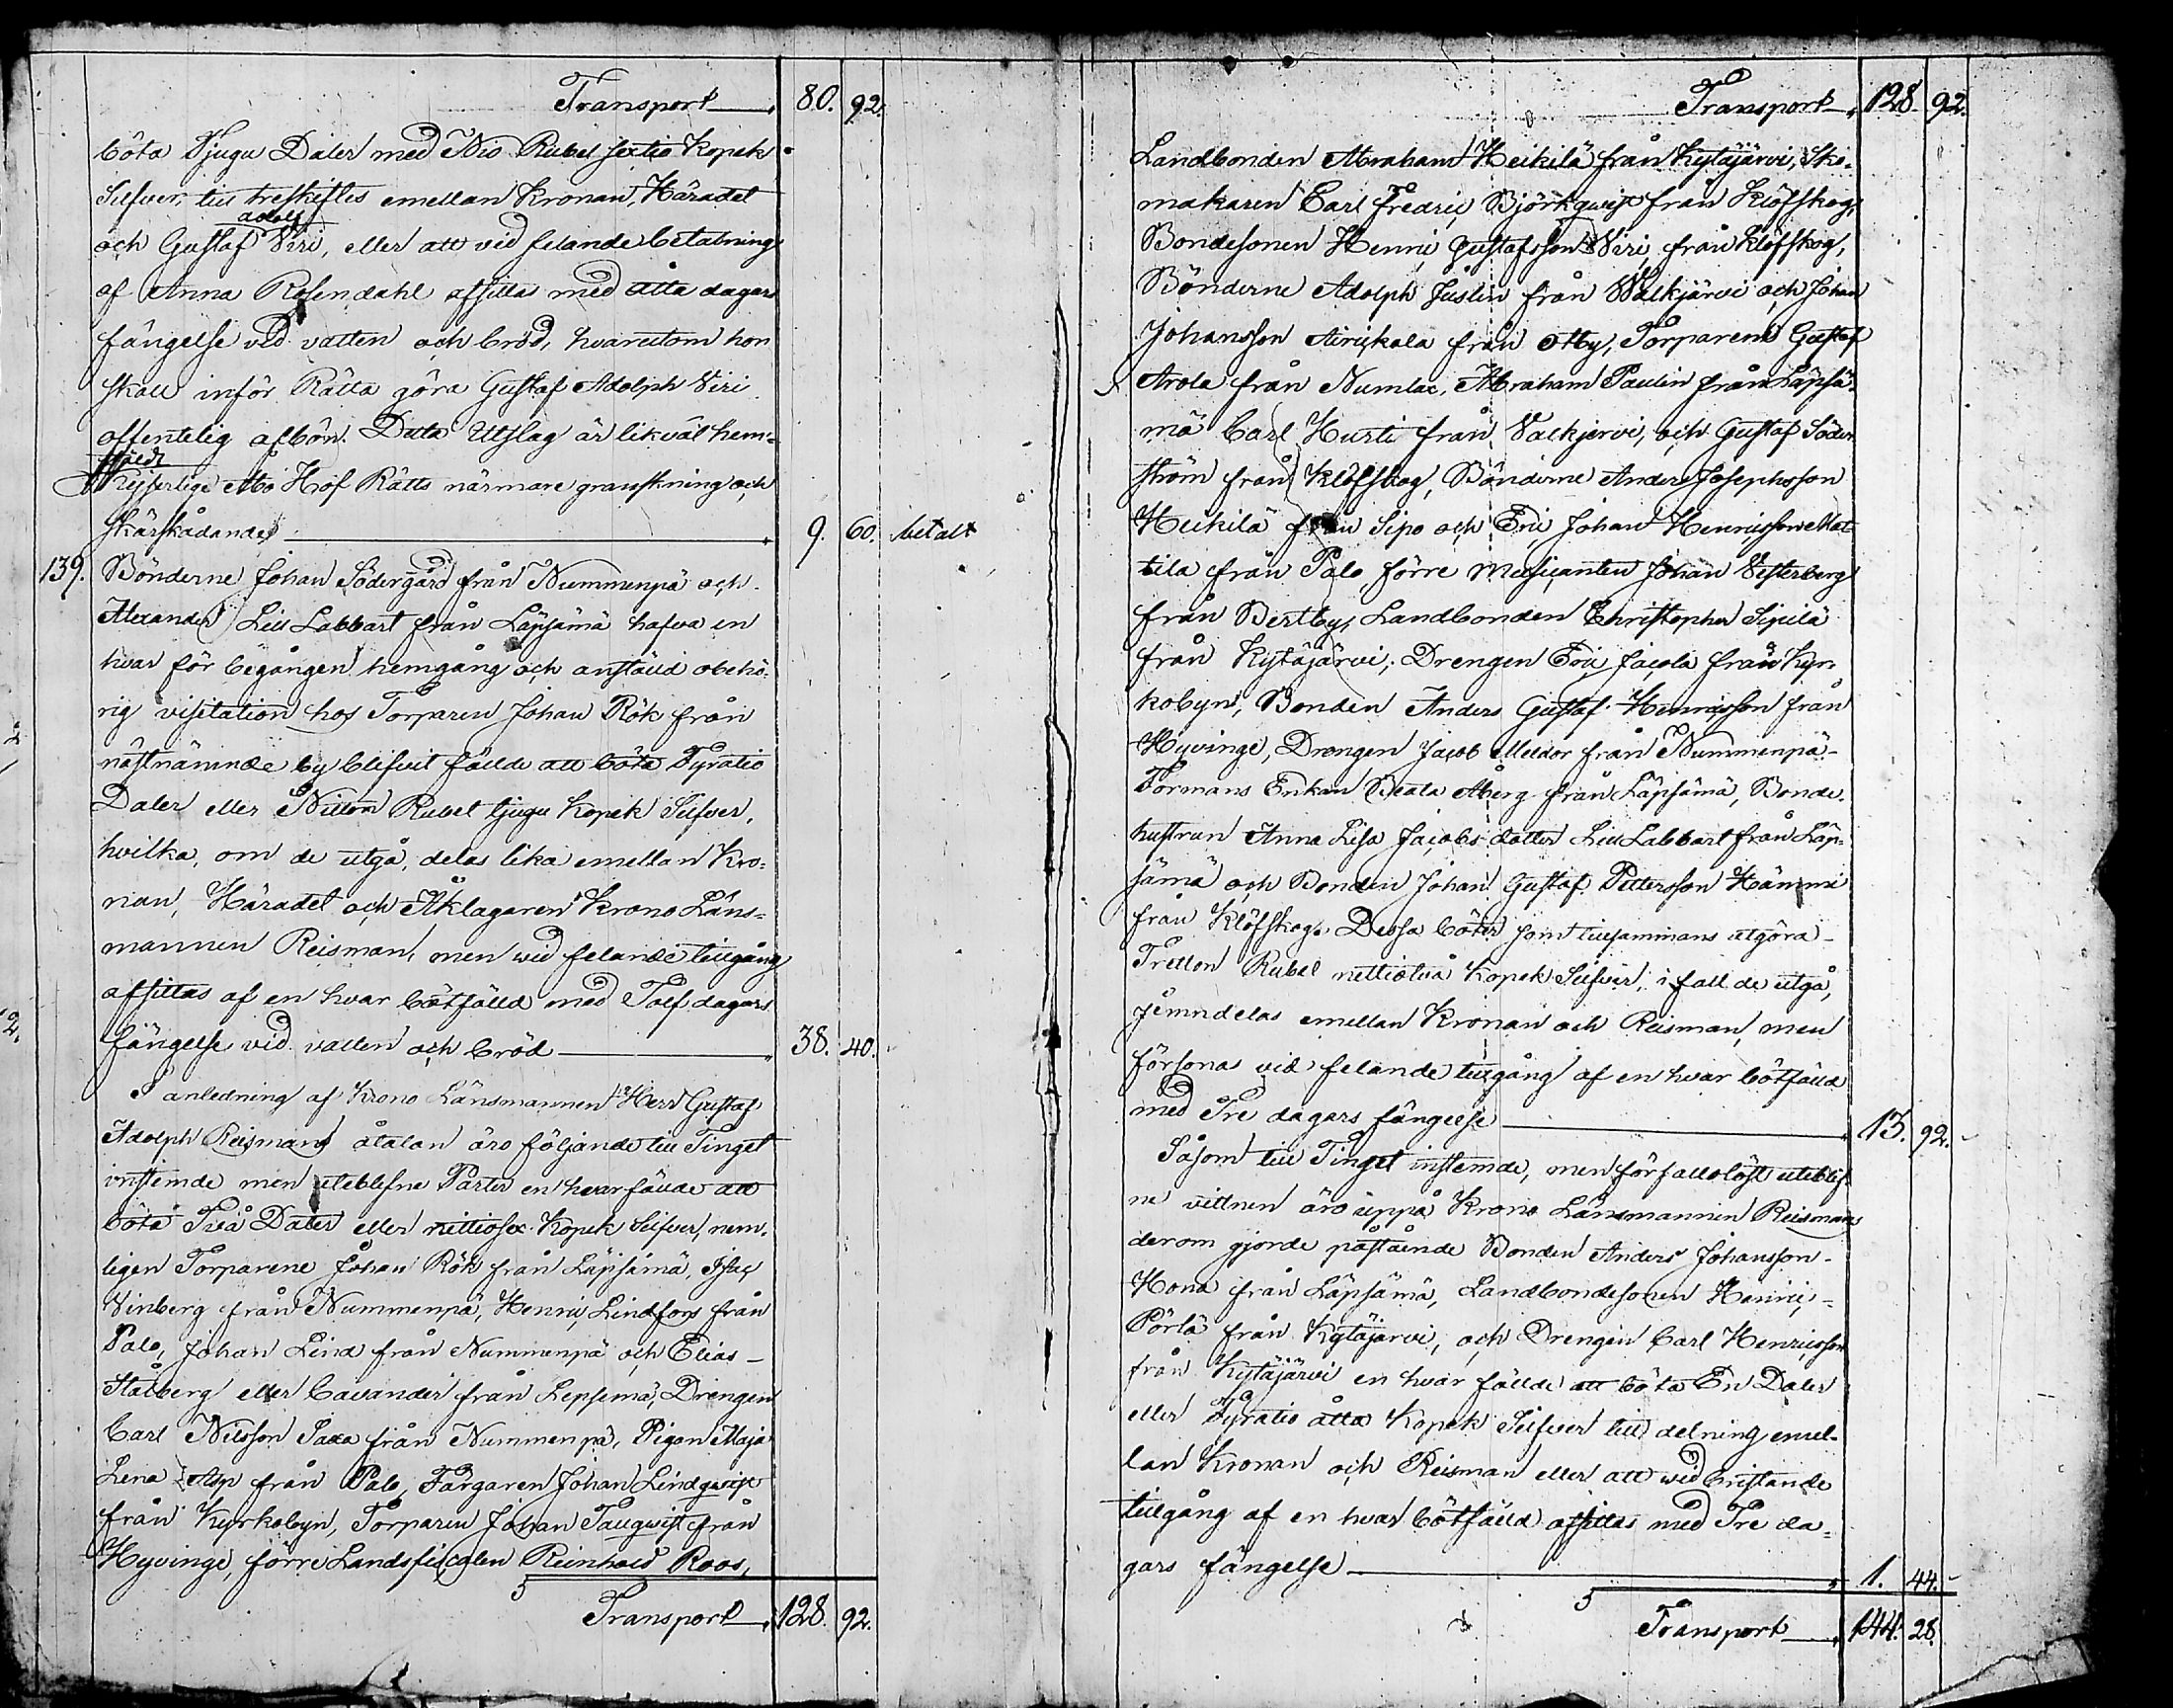 Transport 80. 92.
böta Tjugu Daler med Nio Rubel sextio Kopek
Silfver, till treskiftes emellan Kronan, Häradet
adolf
och Gustaf Viri, eller att vid felande betalning
af Anna Rosendahl afsittas med åtta dagars
fängelse vid vatten och bröd, hvarutom hon
skall inför Rätta göra Gustaf Adolph Viri
offentelig afbön. Detta Utslag är likväl hem-
stäldt
Kejserlige Åbo Hof Rätts närmare granskning och
skärskådande 9. 60. betalt
139. Bönderne Johan Södergård från Nummenpä och
Alexander Lill Labbart från Läpsämä hafva en
hvar för begången hemgång och anstäld obehö-
rig visitation hos Torparen Johan Rök från
näst nämnde by blifvit fällde att böta Fyratio
Daler eller Nitton Rubel tjugu Kopek Silfver,
hvilka, om de utgå, delas lika emellan Kro-
nan, Häradet och Åklagaren Krono Läns-
mannen Reisman, men wid felande tillgång
afsittas af en hvar bötfälld med Tolf dagars
fängelse vid vatten och bröd 38. 40.
I anledning af Krono Länsmannen Herr Gustaf
Adolph Reismans åtalan äro följande till Tinget
instemde men uteblefne Parter en hvar fällde att
böta Två Daler eller nittiosex Kopek Silfver, nem-
ligen Torparene Johan Rök från Läpsämä, Isac
Vinberg från Nummenpä, Henric Lindfors från
Palo, Johan Lind från Nummenpä och Elias
Stålberg eller Cavander från Lepsemä, Drengen
Carl Nilsson Saxa från Nummenpä, Pigan Maja
Lena Asp från Palo, Färgaren Johan Lindqwist
från Kyrkobyn, Torparen Johan Taugwist från
Hyvinge, förre Landsfiscalen Reinhold Roos,
Transport 128. 92.
Transport 128. 92.
Landbonden Abraham Heikilä från Kytäjärvi, Sko-
makaren Carl Fredric Björkqwist från Klöfskog,
Bondesonen Henric Gustafsson Viri från Klöfskog,
Bönderne Adolph Juslin från Walkjärvi och Johan
Johansson Airickala från Åby, Torparene Gustaf
Arola från Numlax, Abraham Paulin från Läpsä-
mä Carl Hurti från Valkjervi, och Gustaf Söder
ström från Klöfskog, Bönderne Anders Josephsson
Heikilä från Sipo och Eric Johan Henricsson Mat
tila från Palo, förre Musicanten Johan Vesterberg
från Bertby, Landbonden Christopher Sipilä
från Kytäjärvi, Drengen Eric Jacola från Kyr-
kobyn, Bonden Anders Gustaf Henricsson från
Hyvinge, Drengen Jacob Meldor från Nummenpä
Formans Enkan Beata Åberg från Läpsämä, Bonde-
hustrun Anna Lisa Jacobs dotter Lill Labbart från Läp-
sämä och Bonden Johan Gustaf Pettersson Hämmi
från Klöfskog. Dessa böter som tillsammans utgöra
Tretton Rubel nettiotvå Kopek Silfver, i fall de utgå,
jemndelas emellan Kronan och Reisman, men
försonas vid felande tillgång af en hvar bötfälld
med Tre dagars fängelse 13. 92.
Såsom till Tinget instemde, men förfallolöst uteblif
ne vittnen äro uppå Krono Länsmannen Reismans
derom gjorde påstående Bonden Anders Johansson
Hona från Läpsämä, Landbondesonen Henric
Pörlä från Kytäjärvi, och Drengen Carl Henricsson
från Kytäjärvi en hvar fällde att böta En Daler
eller Fyratio åtta Kopek Silfver till delning emel-
lan Kronan och Reisman eller att wid bristande
tillgång af en hvar bötfälld afsittas med Tre da-
gars fängelse 1. 44.
Transport 144. 28.